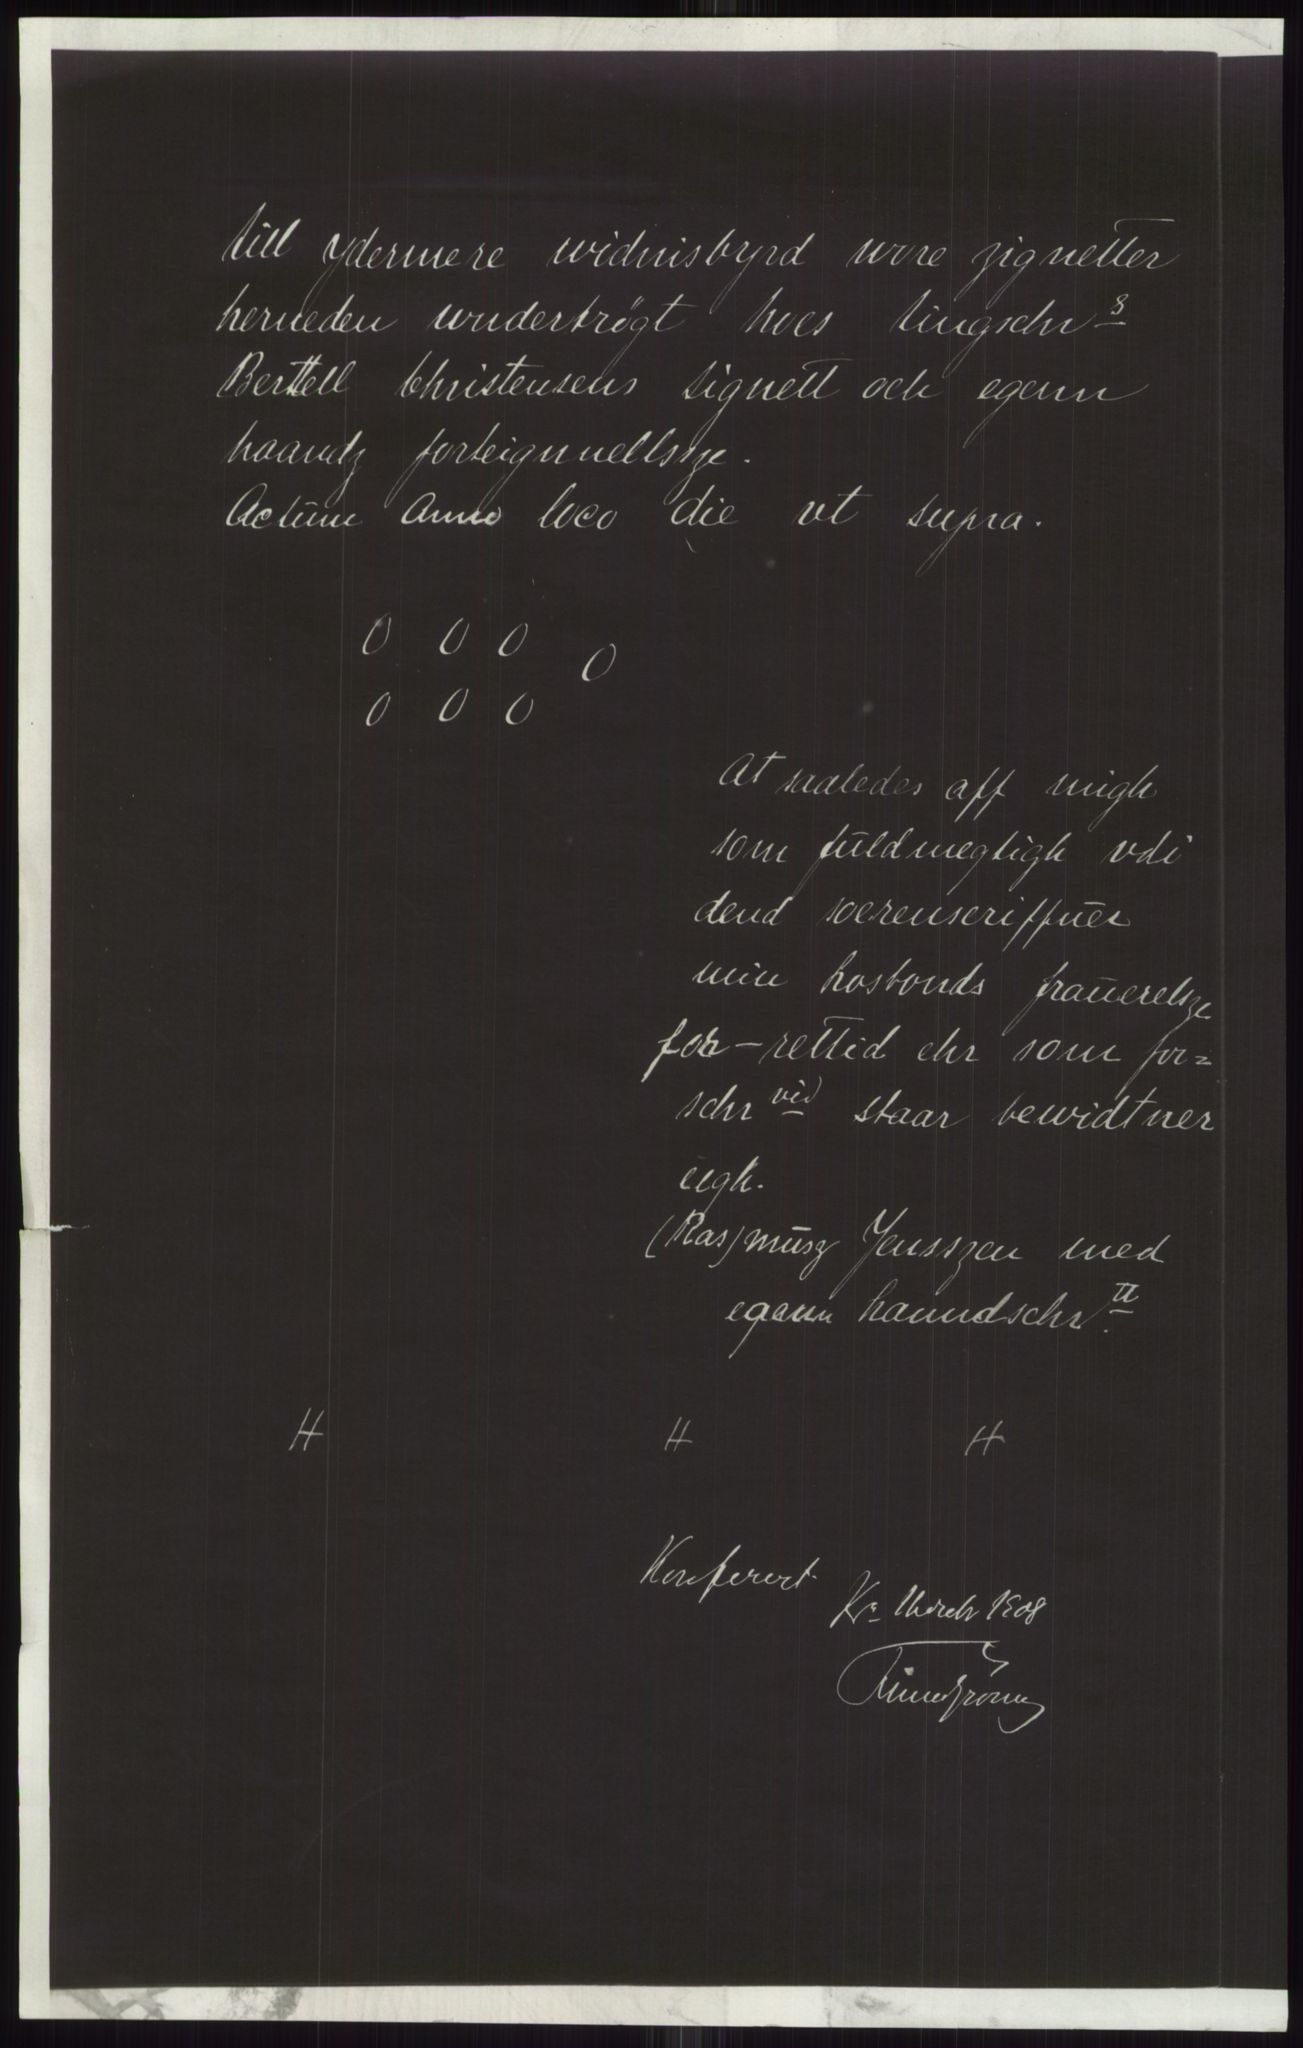 till ydermere widnisbyrd wore zignetter
herneden wndertrøgt hoes tingschr s
Berttell Christensens signett och egenn
haandz forteignnellsze.
Actum Anno loco die vt supra.
0 0 0 0
0 0 0
At saaledes aff migh
som fuldmegtigh vdi
dend
min hosbonds frauerelsze
for-rettid ehr som for=
schr vid staar bewidtner
iegh.
(Ras)musz Jensszen med
egenn hanndschr tt.
H H H
Konferert.
Kr. March 1908